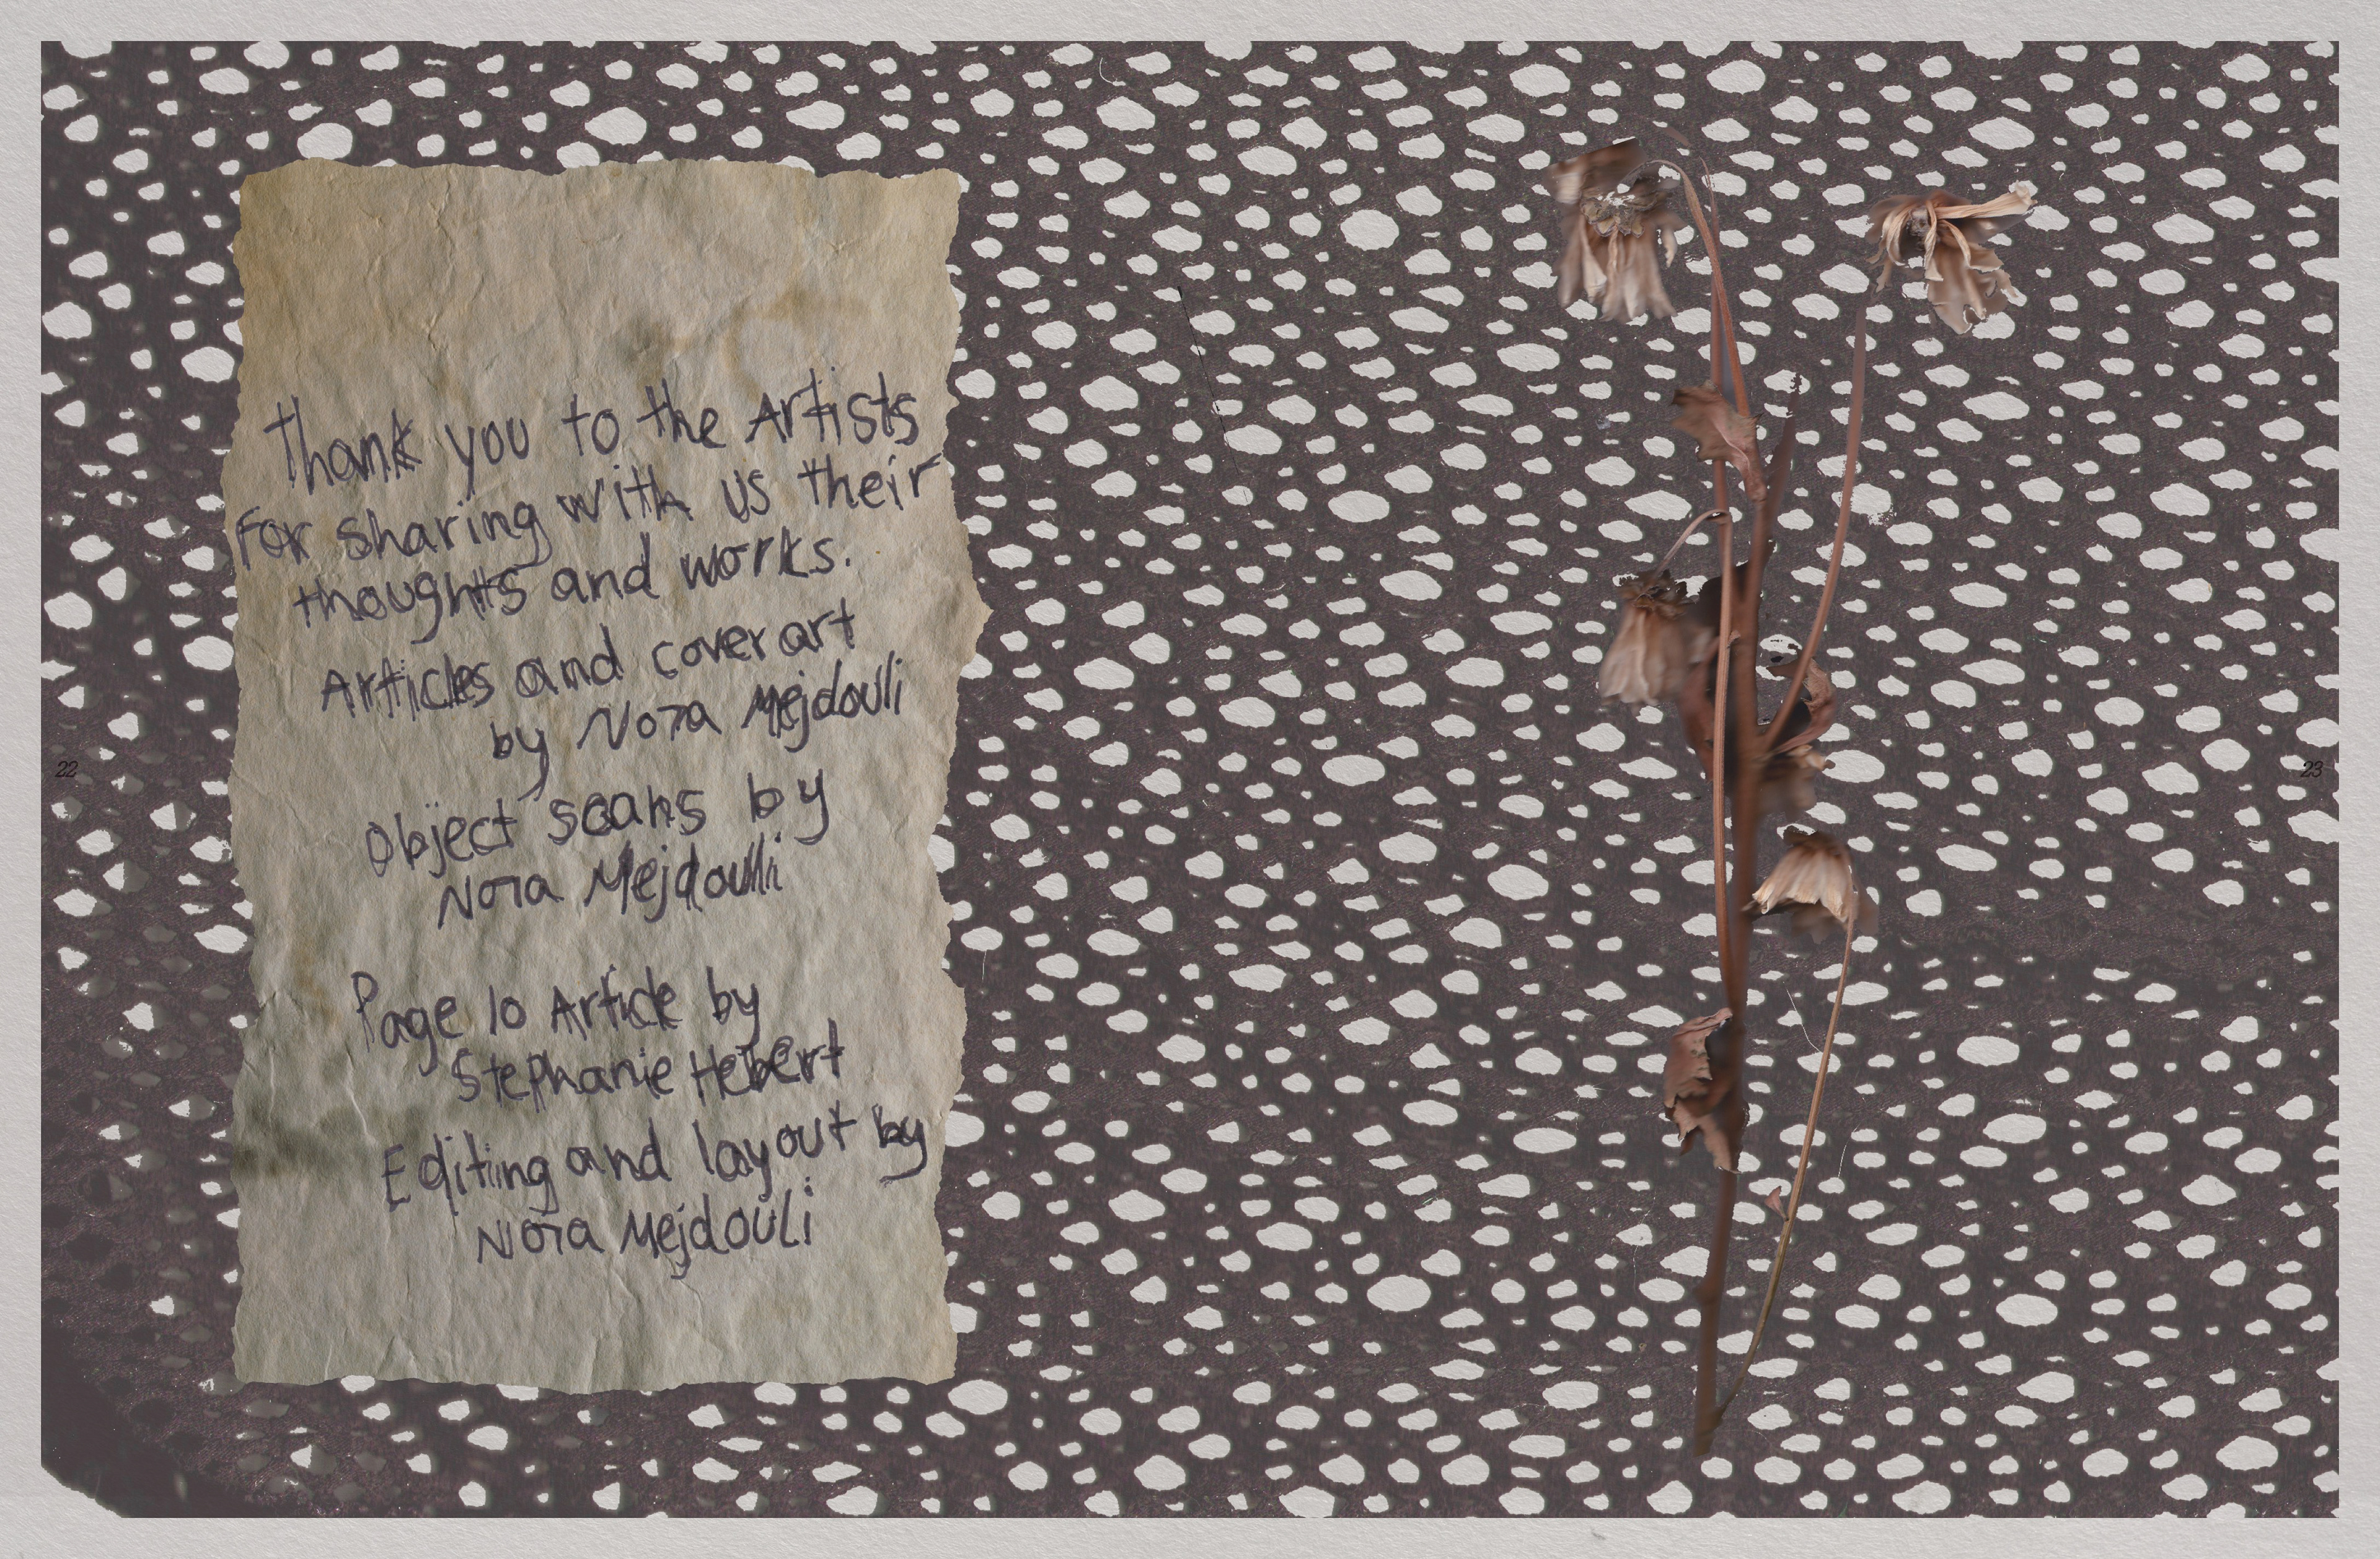 Thank you to the Artists
For sharing with us their
thoughts and works.
Articles and cover art
by Nora Mejdouli
Object scans by
Nora Mejdoulli
Page 10 Article by
Stephanie Hebert
Editing and layout by
Nora Mejdouli
22
23